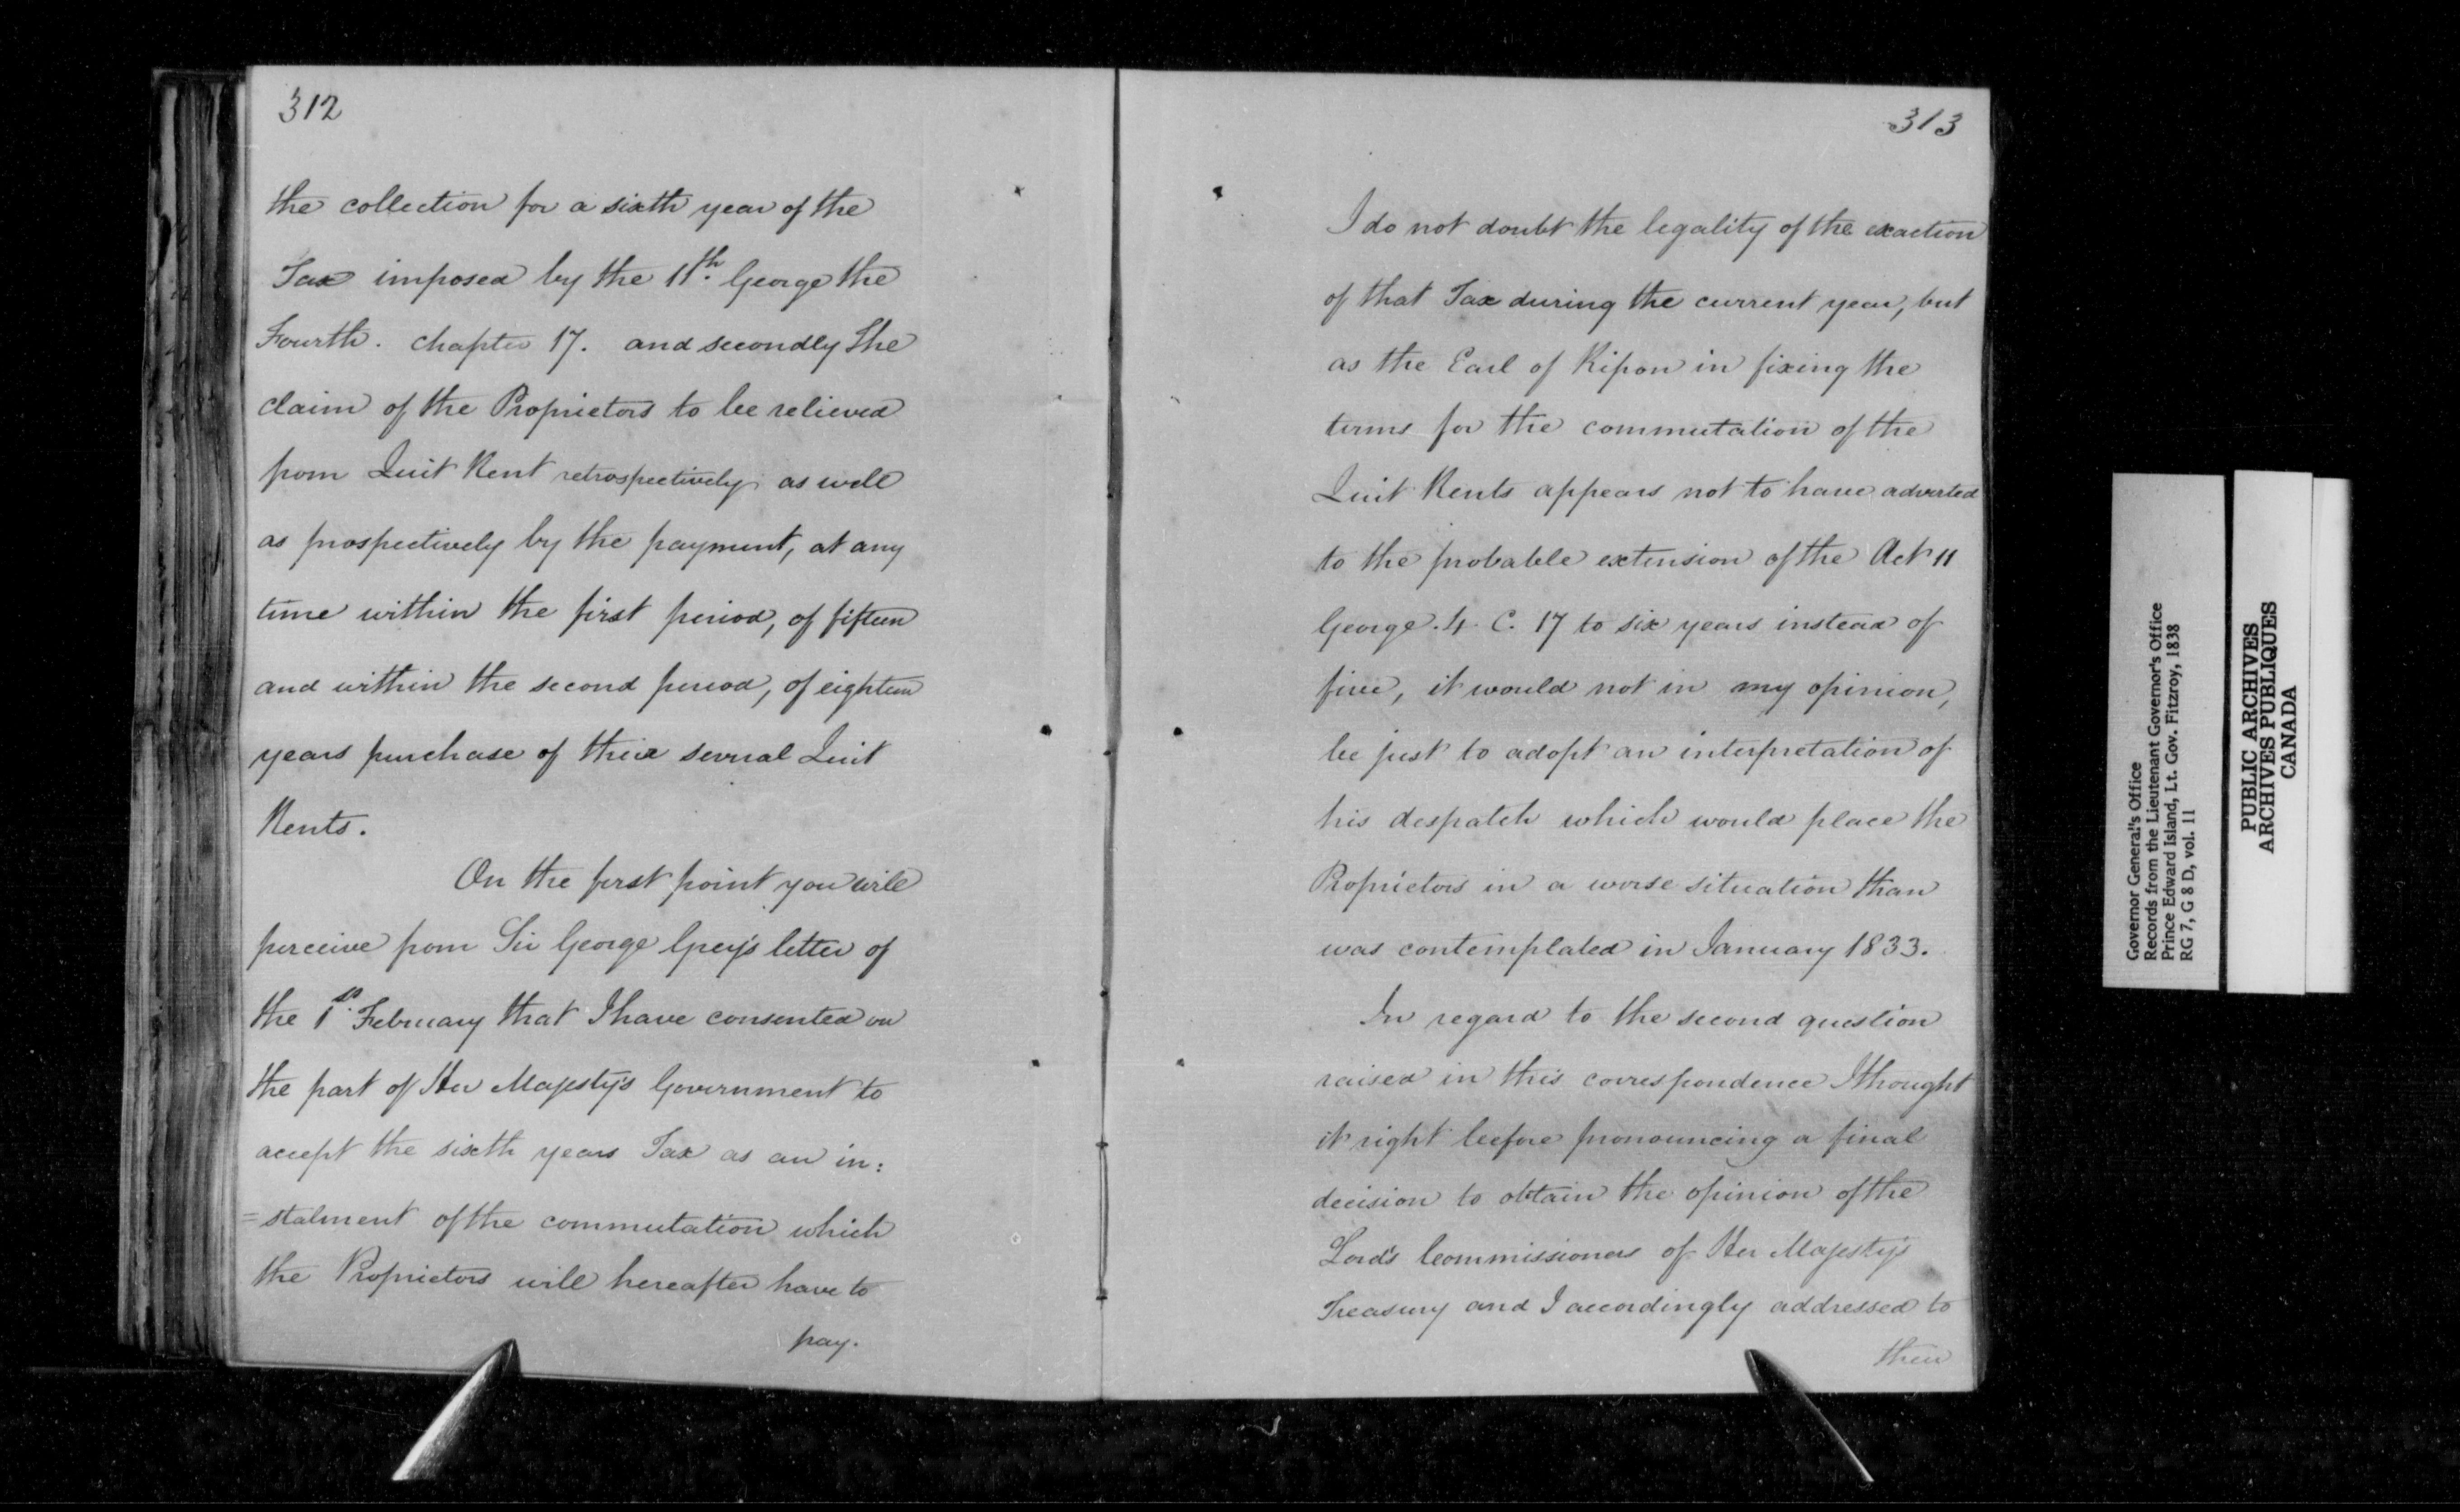 312
the collection for a sixth year of the
Tax imposed by the 11th. George the
Fourth. chapter 17. and secondly The
claim of the Proprietors to be relieved
from Quit Rent retrospectively as well
as prospectively by the payment, at any
time within the first period, of fifteen
and within the second period, of eighteen
years purchase of their several Quit
Rents.
On the first point you will
perceive from Sir George Grey's letter of
the 1st. February that I have consented on
the part of Her Majesty's Government to
accept the sixth years Tax as an in:
=stalment of the commutation which
the Proprietors will hereafter have to
pay.
313
I do not doubt the legality of the exaction
of that Tax during the current year, but
as the Earl of Ripon in fixing the
terms for the commutation of the
Quit Rents appears not to have adverted
to the probable extension of the Act 11
George. 4. C. 17 to six years instead of
five, it would not in my opinion,
be just to adopt an interpretation of
his despatch which would place the
Proprietors in a worse situation than
was contemplated in January 1833.
In regard to the second question
raised in this correspondence I thought
it right before pronouncing a final
decision to obtain the opinion of the
Lord's Commissioners of Her Majesty's
Treasury and I accordingly addressed to
their
Governor General's Office
Records from the Lieutenant Governor's Office
Prince Edward Island, Lt. Gov. Fitzroy, 1838
RG 7, G 8 D, vol. 11
PUBLIC ARCHIVES
ARCHIVES PUBLIQUES
CANADA